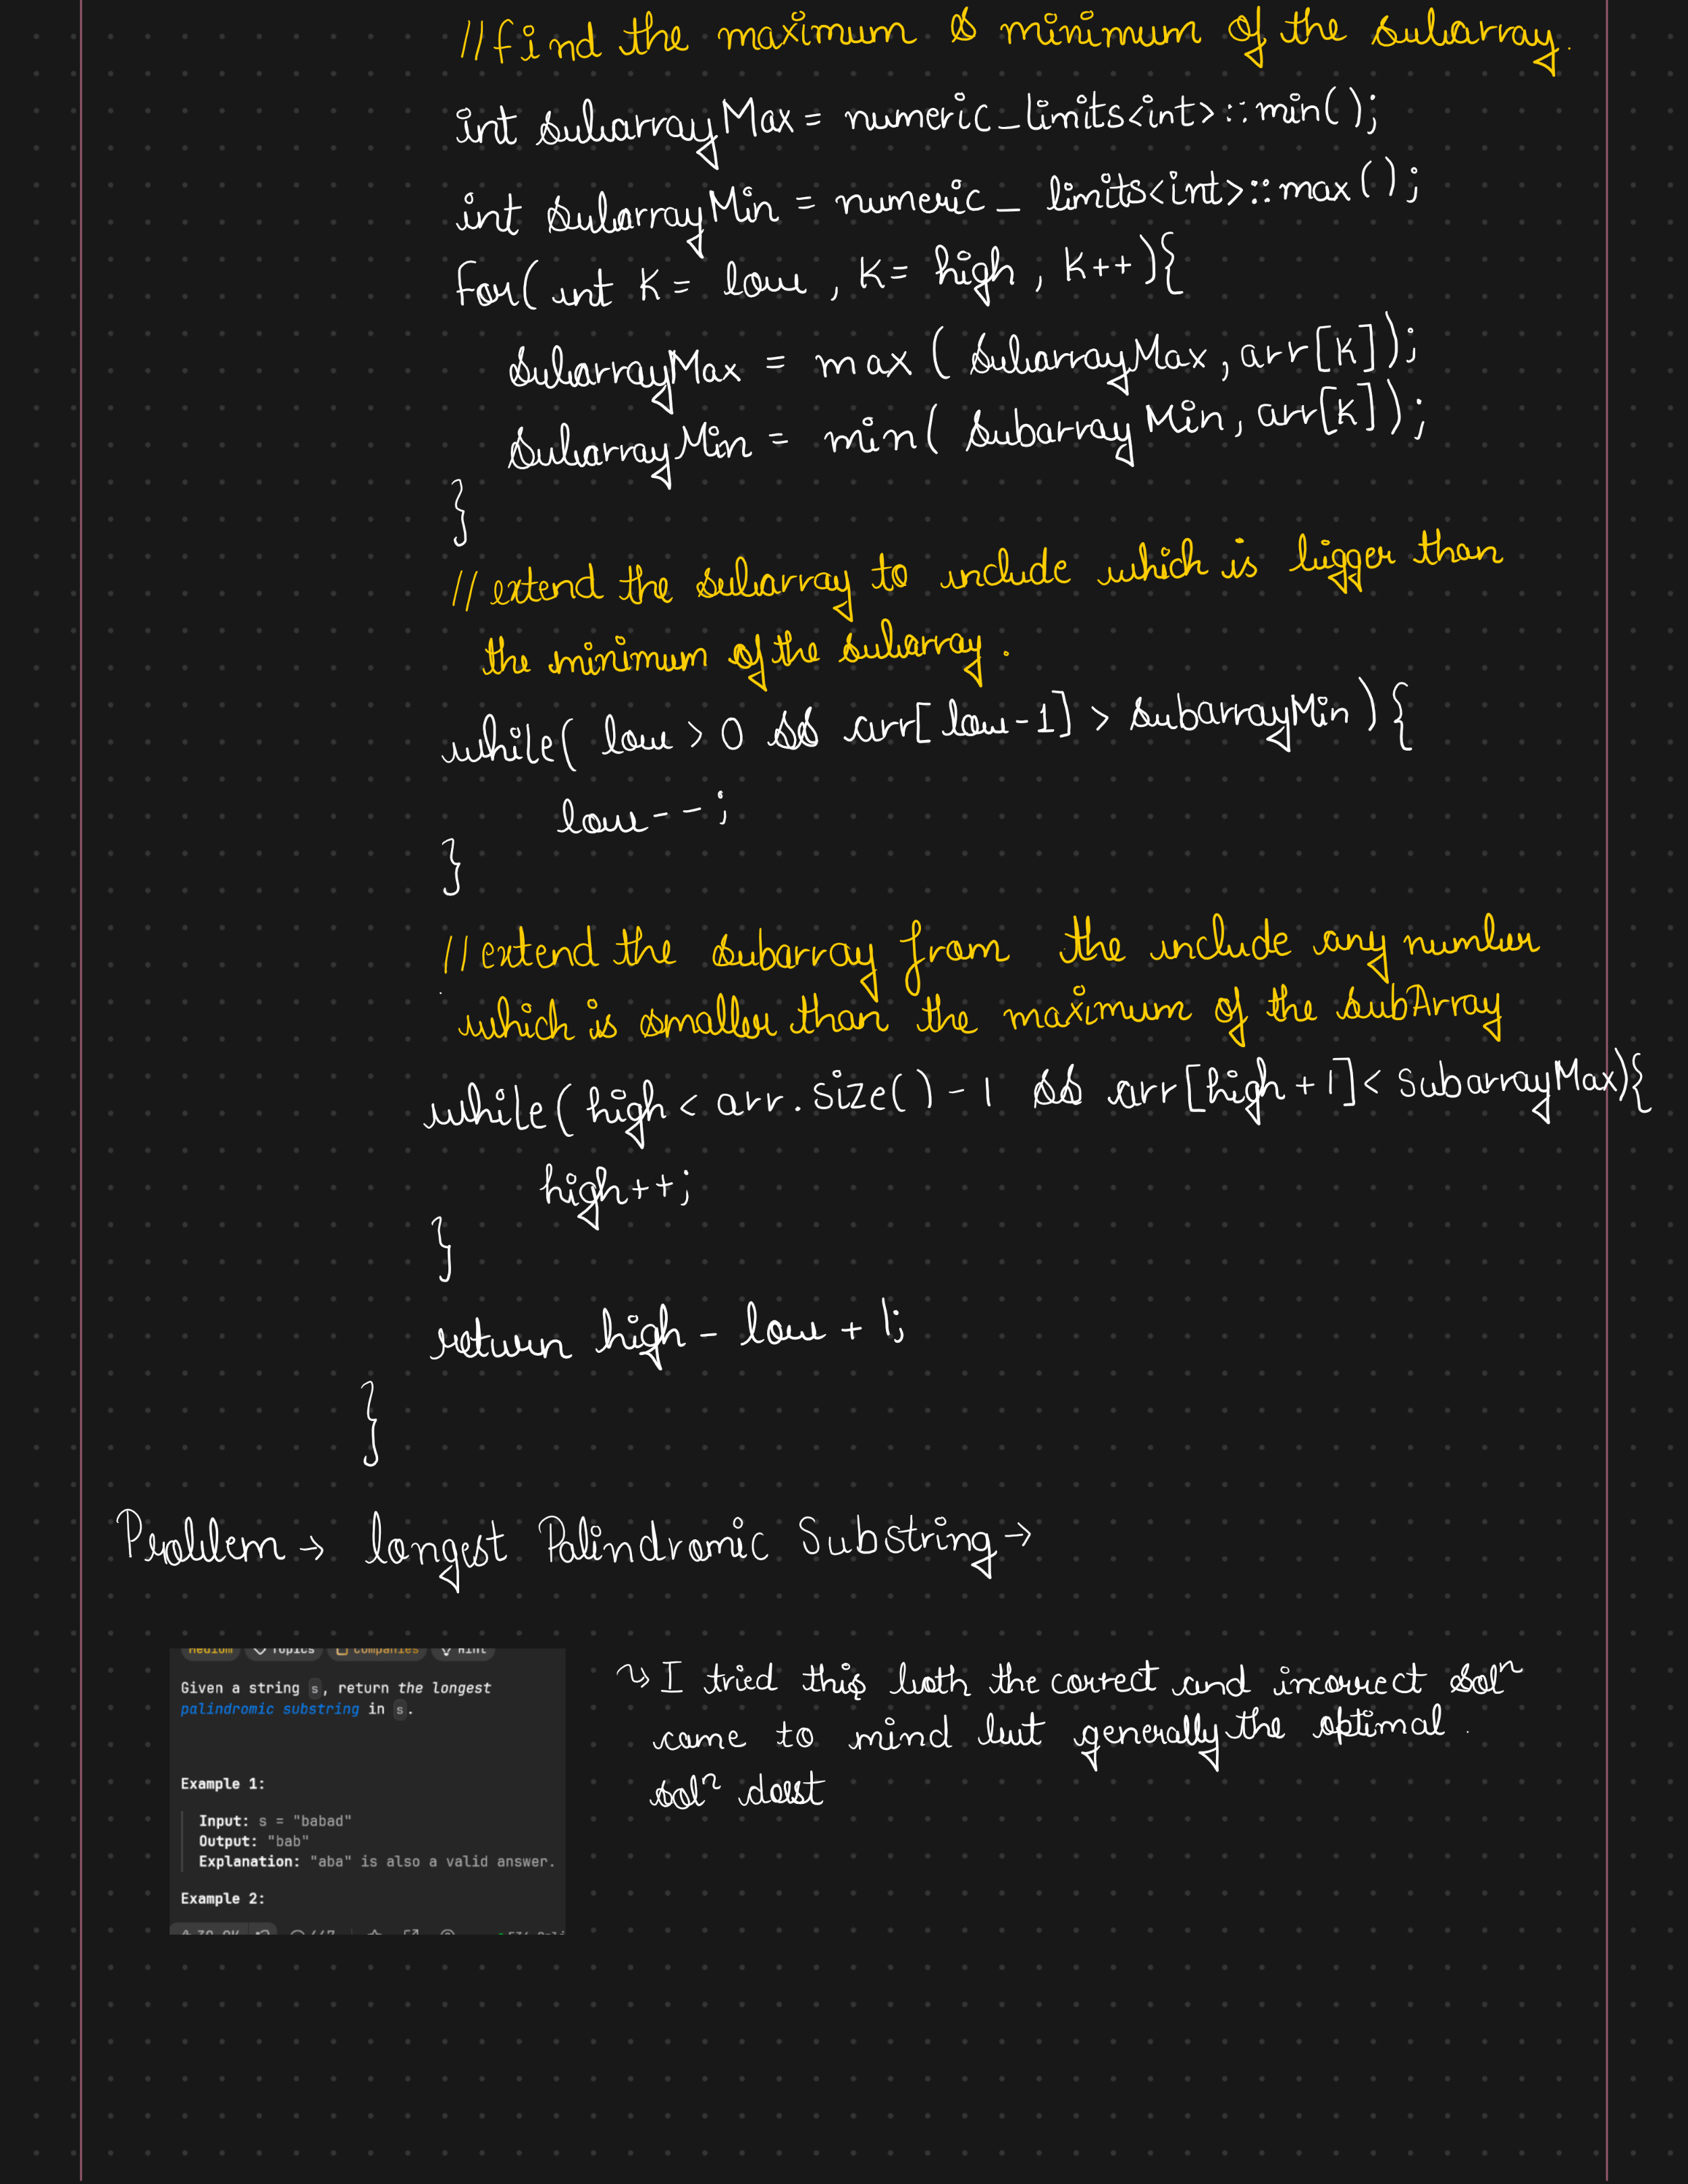 //find the maximum & minimum of the subarray.
int subarrayMax = numeric_limits<int>::min();
int subarrayMin = numeric_ limits<int>::max();
for( int K = low , K= high , K++){
subarrayMax = max ( subarrayMax, arr[K]);
subarrayMin = min( subarray Min, arr[K]);
}
//extend the subarray to include which is bigger than
the minimum of the subarray.
while( low > 0 && arr[low-1] > subarrayMin){
low--;
}
//extend the subarray from the include any number
which is smaller than the maximum of the subArray
while(high < arr.size()-1 && arr[high+1]< SubarrayMax){
high++;
}
return high - low + 1;
}
Problem → longest Palindromic Substring →
Medium Topics Companies Hint
Given a string s, return the longest
palindromic substring in s.
Example 1:
Input: s = "babad"
Output: "bab"
Explanation: "aba" is also a valid answer.
Example 2:
↝ I tried this both the correct and incorrect solⁿ
came to mind but generally the optimal.
solⁿ